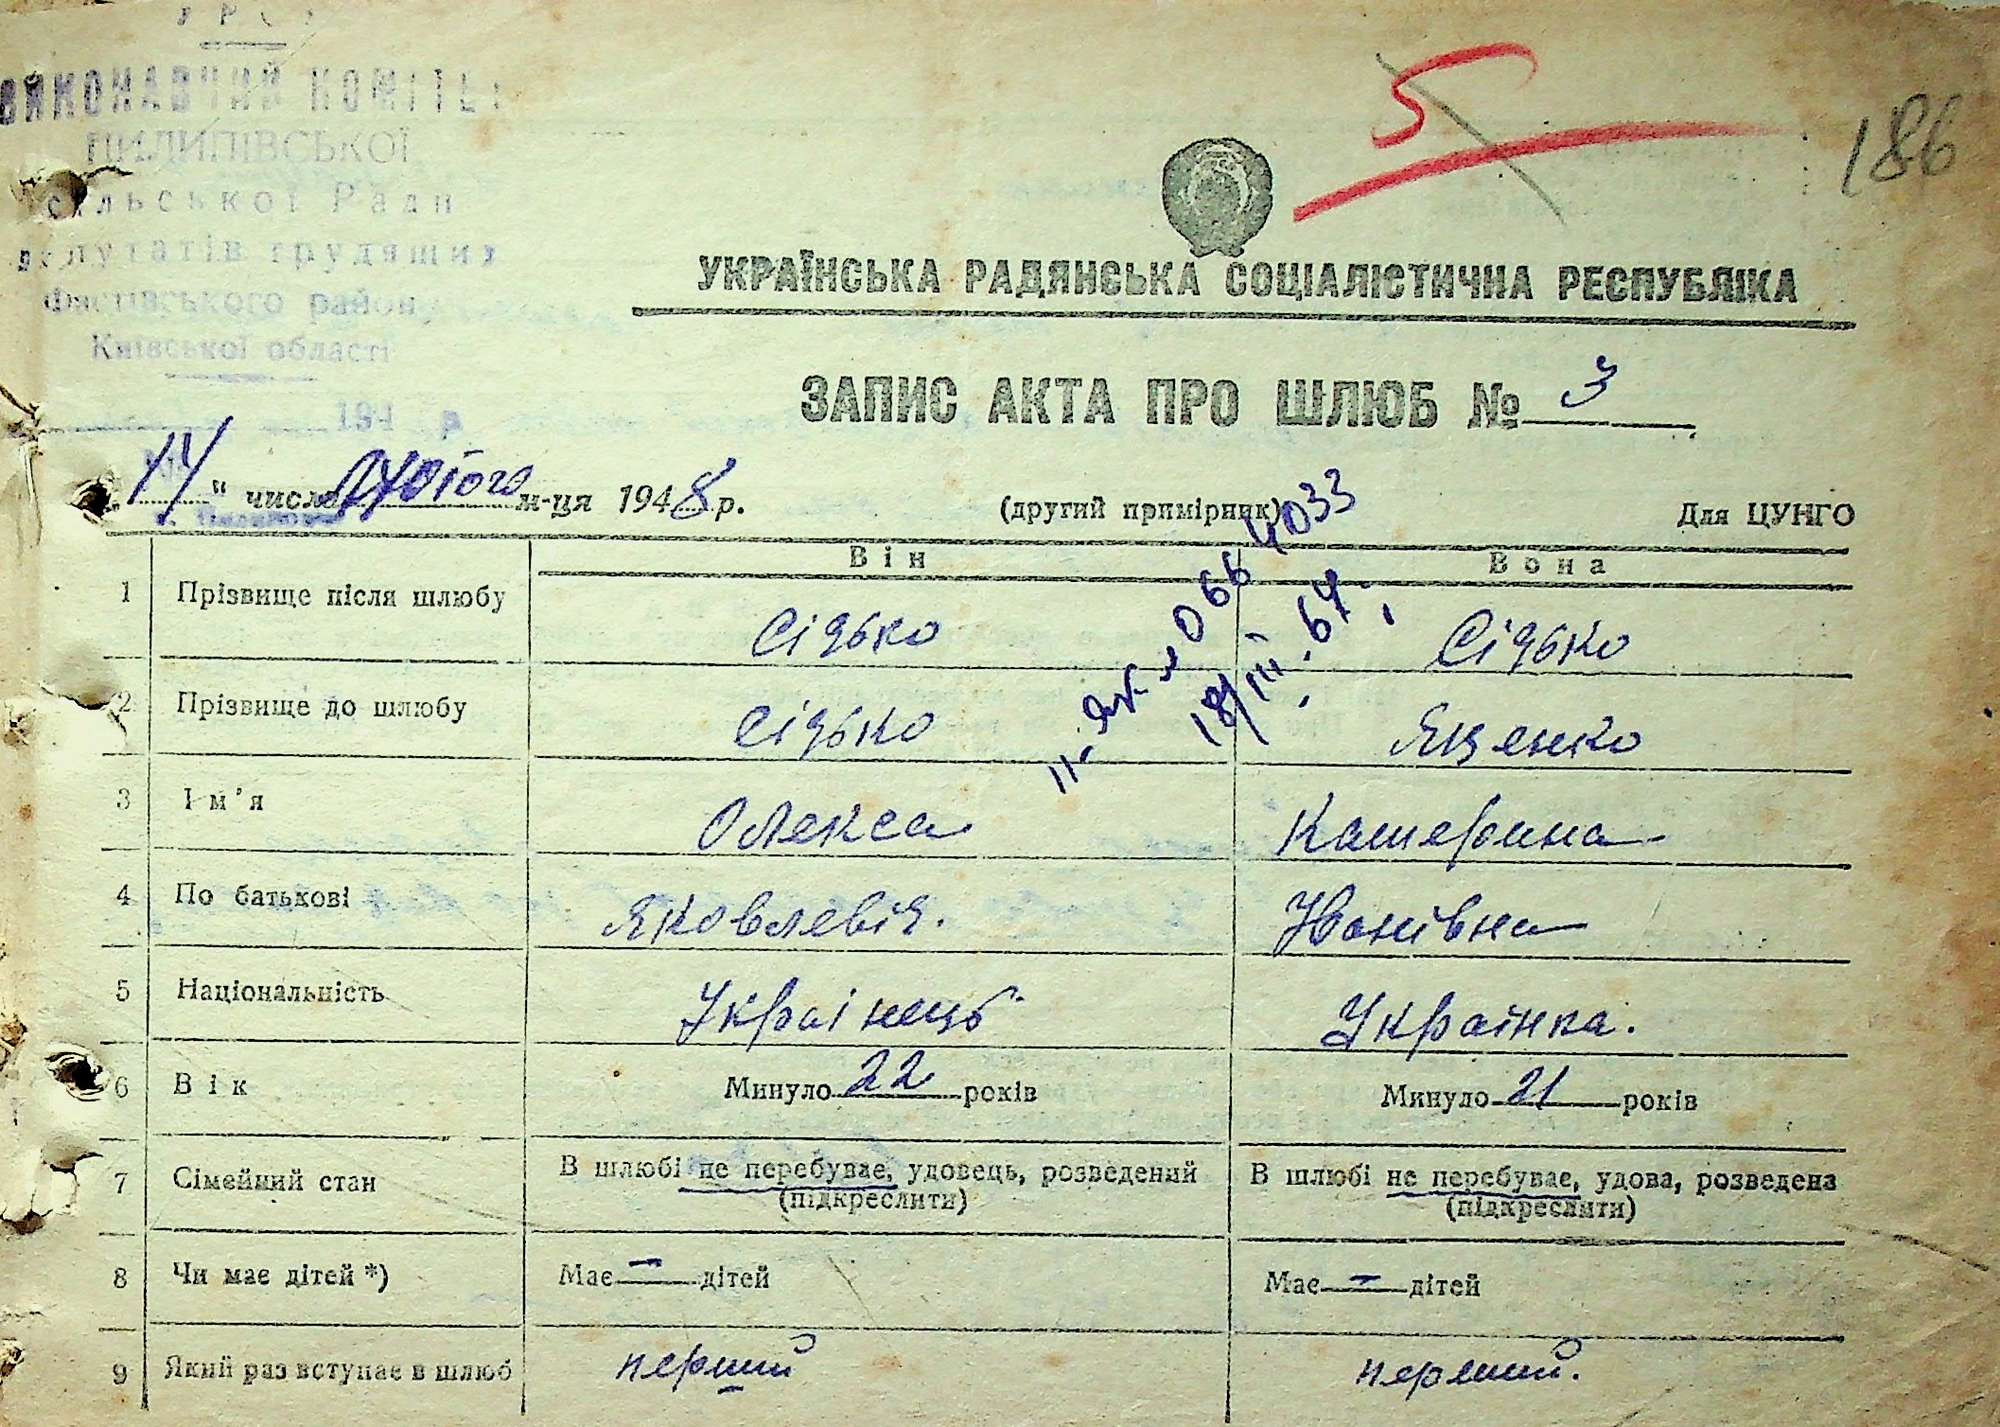 УРСР
ВИКОНАВЧИЙ КОМІТЕТ
ПИЛИПІВСЬКОЇ
сільської Ради
депутатів трудящих
Фастівського району
Київської області
194 р.
5
186
УКРАЇНСЬКА РАДЯНСЬКА СОЦІАЛІСТИЧНА РЕСПУБЛІКА
ЗАПИС АКТА ПРО ШЛЮБ № 3
14 " число лютого м-ця 1948 р.
(другий примірник)
Для ЦУНГО
Він Вона
1 Прізвище після шлюбу Сідько Сідько
2 Прізвище до шлюбу Сідько Яценко
3 Ім'я Олекса Катерина
4 По батькові Яковлевіч. Іванівна
5 Національність Українець Українка.
6 Вік Минуло 22 років Минуло 21 років
7 Сімейний стан В шлюбі не перебуває, удовець, розведений В шлюбі не перебуває, удова, розведена
(підкреслити) (підкреслити)
8 Чи має дітей *) Має – дітей Має – дітей
9 Який раз вступає в шлюб перший перший.
II-ЯК № 0664033
18/III.67.